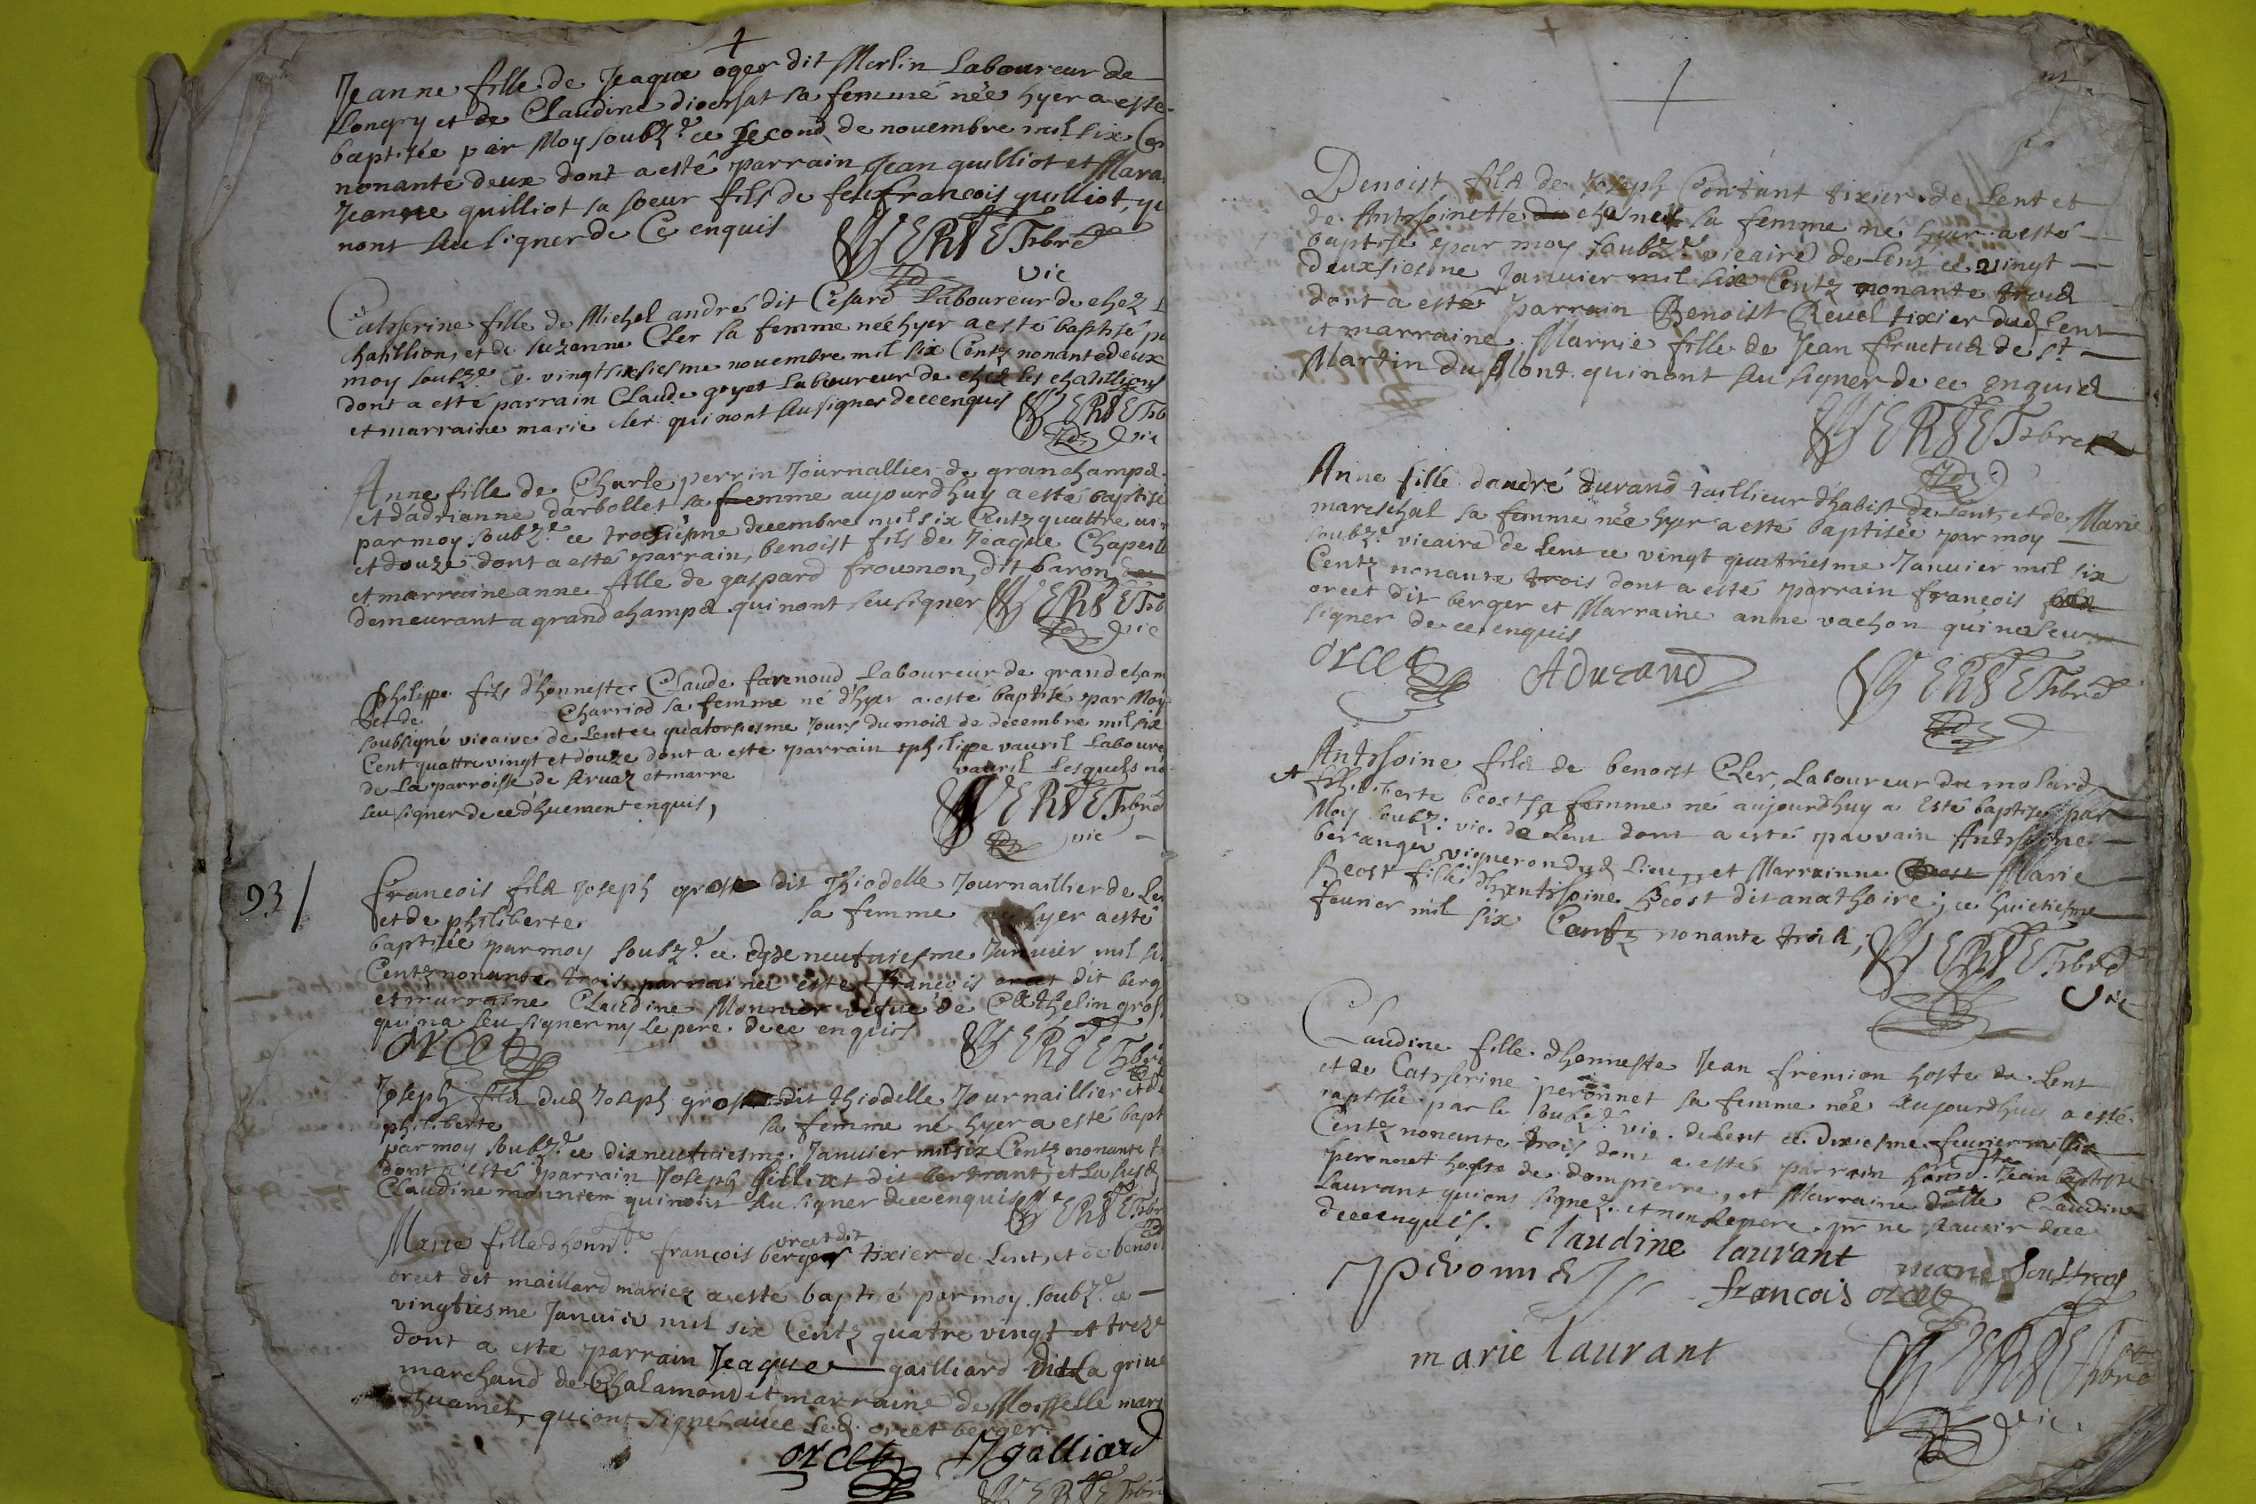 Jeanne fille de Jeaque oger dit Merlin Laboureur de
Longry et de Claudine diocrsat sa femme née hyer a esté
baptisée par Moy soubz.é ce second de novembre mil six
nonante deux dont a esté parrain Jean quilliot et
Jeanne quilliot sa soeur fils de feu francois quilliot,
nont sçu signer de Ce enquis
vic
Catherine fille de Michel andré dit Cesard Laboureur de chez
chatillion, et de suzanne Cler sa femme née hyer a esté baptisé
moy soubz.é ce vingtsixsiesme novembre mil six Centz nonante deux
dont a esté parrain Claude goyet Laboureur de chez les chatillions
et marraine marie cler qui nont sçu signer de ce enquis
vic
Anne fille de Charle perrin Journallier de granchamps
et dadrianne darbollet sa femme aujourdhuy a esté baptisé
par moy soubz.é ce troisiesme decembre mil six Centz quattre
et douze dont a esté parrain, benoist fils de Jeaque
et marraine anne fille de gaspard frounon, dit baron
demeurant a grandchamps qui nont sceu signer
vic
Philippe fils d'honneste Claude favenoud Laboureur de grand
et de Charriod sa femme né d'hyer a esté baptisé par Moy
soubsigné vicaire de Lent ce quatorsiesme Jours du mois de decembre mil six
Cent quattre vingt et douze dont a esté parrain philipe vauril
de La parroisse de et marre vauril Lesquels
sceu signer de ce dhuement enquis,
vic
93/
francois fils Joseph gros dit thiodelle Journaillier de
et de philiberte sa femme hyer a esté
baptisée par moy soubz.é ce dixneufviesme Janvier mil
Centz nonante trois parrain a esté francois orcet dit
et marraine Claudine Monnier vefve de Cathelin
qui na sceu signer ny le pere de ce enquis
orcet
Joseph fils dud Joseph gros dit thiodelle Journaillier et de
philiberte sa femme né hyer a esté
par moy soubz.é ce dixneufviesme Janvier mil six Centz nonante
dont a esté parrain Joseph billiat dit bertrant, et La susd
Claudine monnier qui nont sçu signer de ce enquis
orcet dit
Marie fille dhonn.te francois berger tixier de Lent, et de
orcet dit maillard mariez a esté baptisé par moy soubz.é ce
vingtiesme Janvier mil six Centz quatre vingt et treze
dont a esté parrain Jeaque gailliard dit La
marchand de Chalamont et marraine de Moiselle
qui ont signer avec Led. orcet berger.
orcet galliard
Benoist fils de Joseph Contant tixier de Lent et
de Anthoinette sa femme né hyer a esté
baptisé par moy soubz.é vicaire de Lent ce vingt
deuxsiesme Janvier mil six Centz nonante trois
dont a esté parrain Benoist Revel tixier dud Lent
et marraine Marrie fille de Jean fructus de st
Martin du Mont qui nont sçu signer de ce enquis
Anne fille dandré durand taillieur dhabist de Lent, et de Marie
mareschal sa femme née hyer a esté baptisée par moy
soubz.é vicaire de Lent ce vingt quatriesme Janvier mil six
Centz nonante trois dont a esté parrain françois
orcet dit berger et Marraine anne vachon qui na sceu
signer de ce enquis
orcet A Durand
Anthoine fils de benoist Cler, Laboureur du molard,
et philiberte beost sa femme né aujourdhuy a esté baptisé par
Moy soubz. vic. de Lent dont a esté parrain Anthoine
beranger vigneron dud Lieu, et Marrainne Marie
Beost fille d'Anthoine Beost dit anathoire; ce huictiesme
fevrier mil six Centz nonante trois;
vic
Claudine fille dhonneste Jean fremion hoste de Lent
et de Catherine peronnet sa femme née aujourdhuy a esté
baptisée par le soubz.é vic. de Lent ce dixiesme fevrier mil six
Centz nonante trois dont a esté parrain honn.te Jean baptiste
peronnet hoste de dompierre, et Marraine dlle Claudine
Laurant qui ont signez. et non le pere pr ne sçavoir de ce
de ce enquis.
claudine laurant
francois orcet
marie laurant
vic.